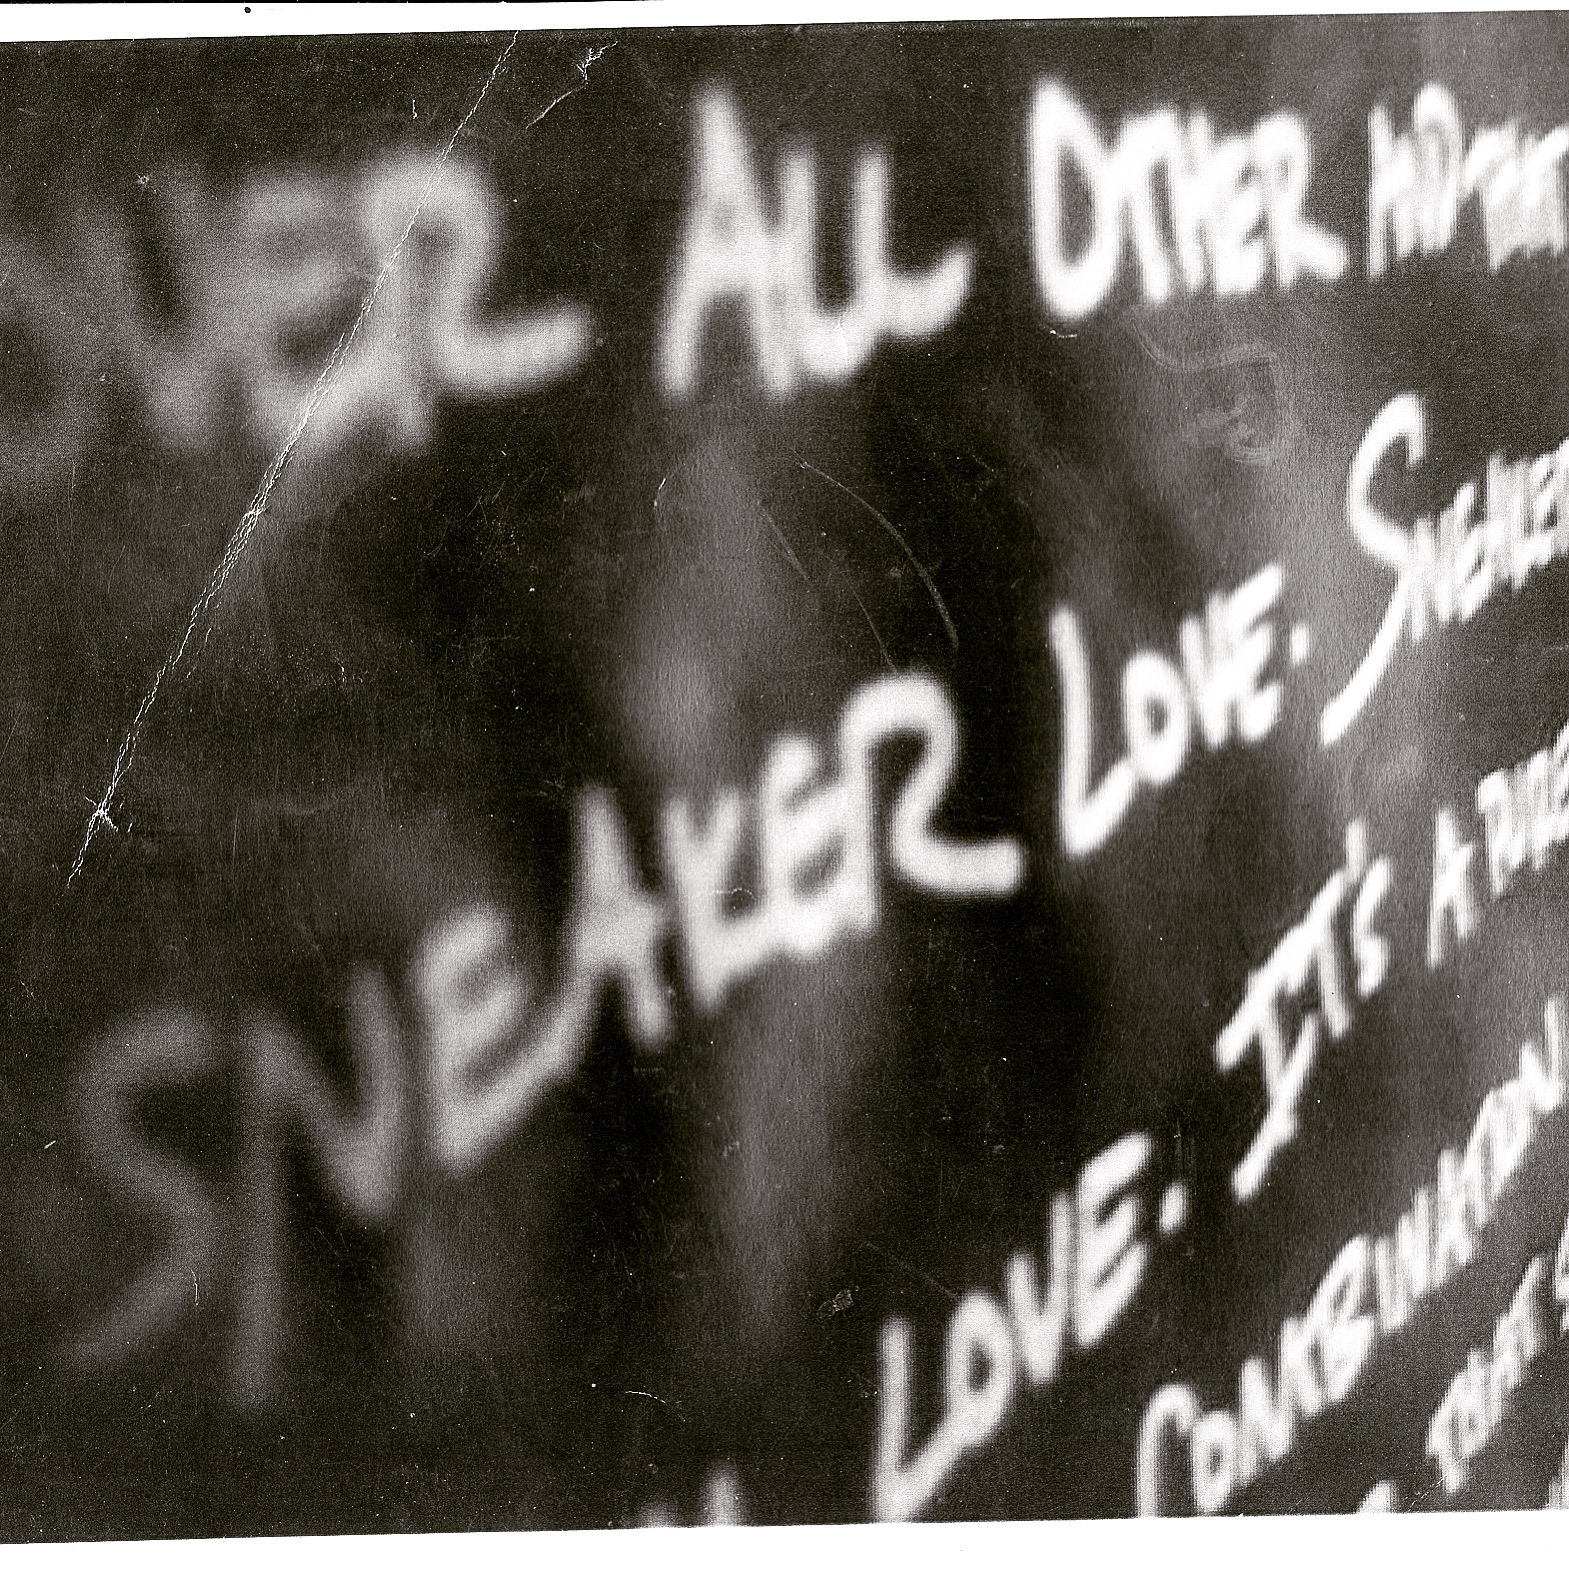 OVER ALL OTHER
SNEAKER LOVE. SNEAKER
LOVE. IT'S A
COMBINATION
THAT'S